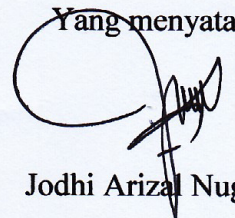 Yang menyata
Jodhi Arizal Nug